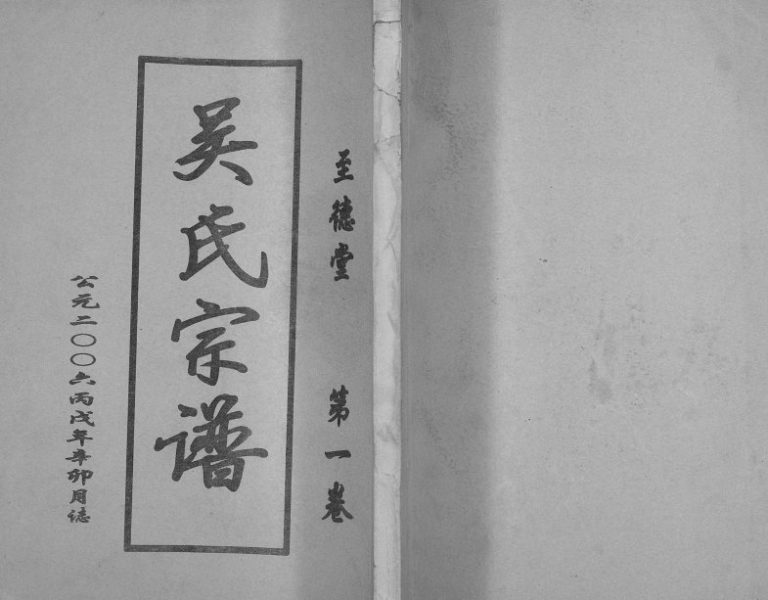 至德堂 第一卷
吴氏宗谱
公元二〇〇六丙戌年辛卯月誌